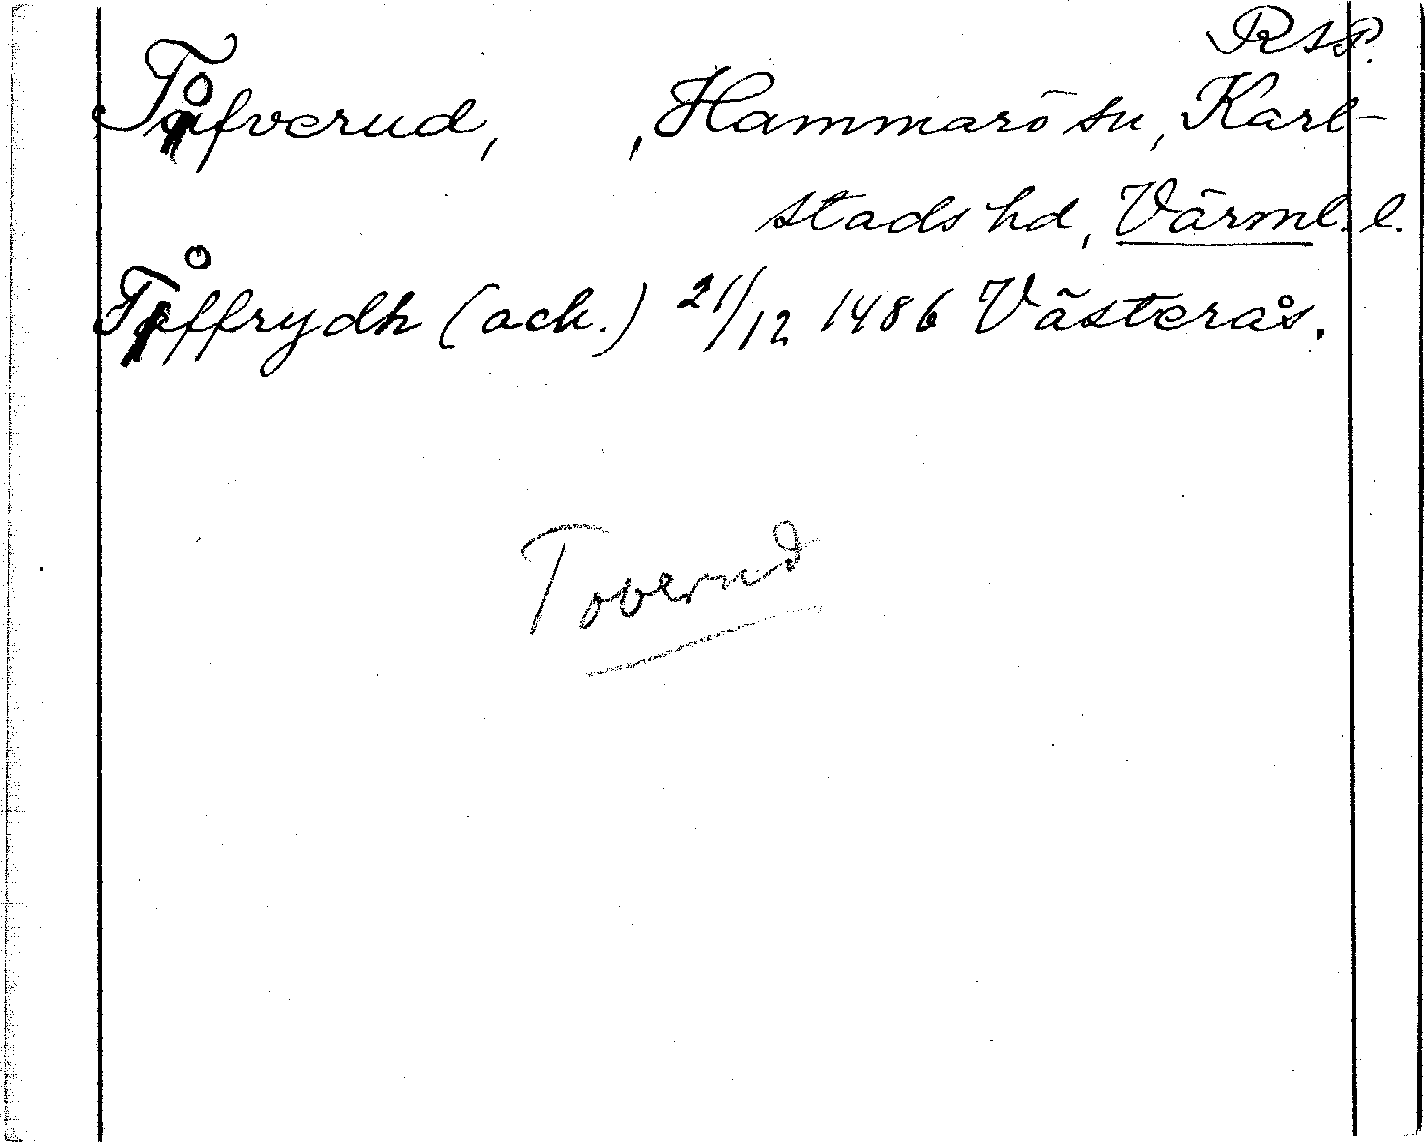 RAP.
Tåfverud, , Hammarö sn, Karl-
stads hd, Värml. l.
Tåffrydh (ack.) 21/12 1486 Västerås.
Toverud